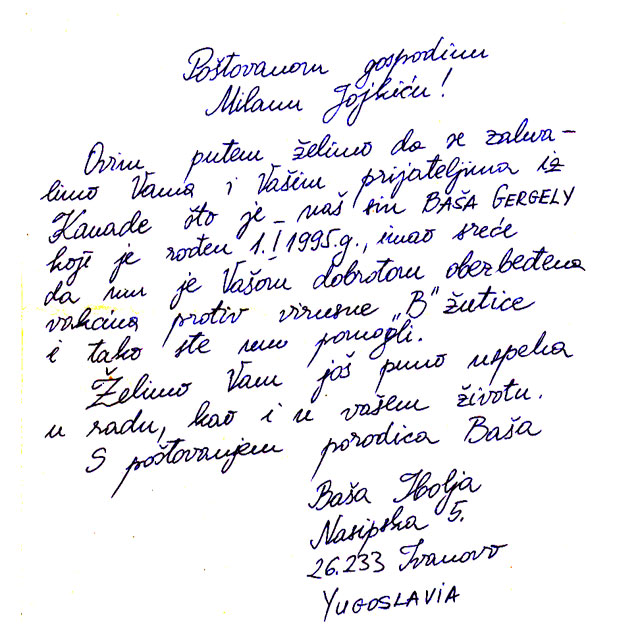 Poštovanom gospodinu
Milanu Jojkiću!
Ovim putem želimo da se zahva-
limo Vama i Vašim prijateljima iz
Kanade što je naš sin BAŠA GERGELY
koji je rođen 1.I 1995.g., imao sreće
da mu je Vašom dobrotom obezbeđena
vakcina protiv virusne „B" žutice
i tako ste mu pomogli.
Želimo Vam još puno uspeha
u radu, kao i u vašem životu.
S poštovanjem porodica Baša
Baša Ibolja
Nasipska 5.
26.233 Ivanovo
YUGOSLAVIA